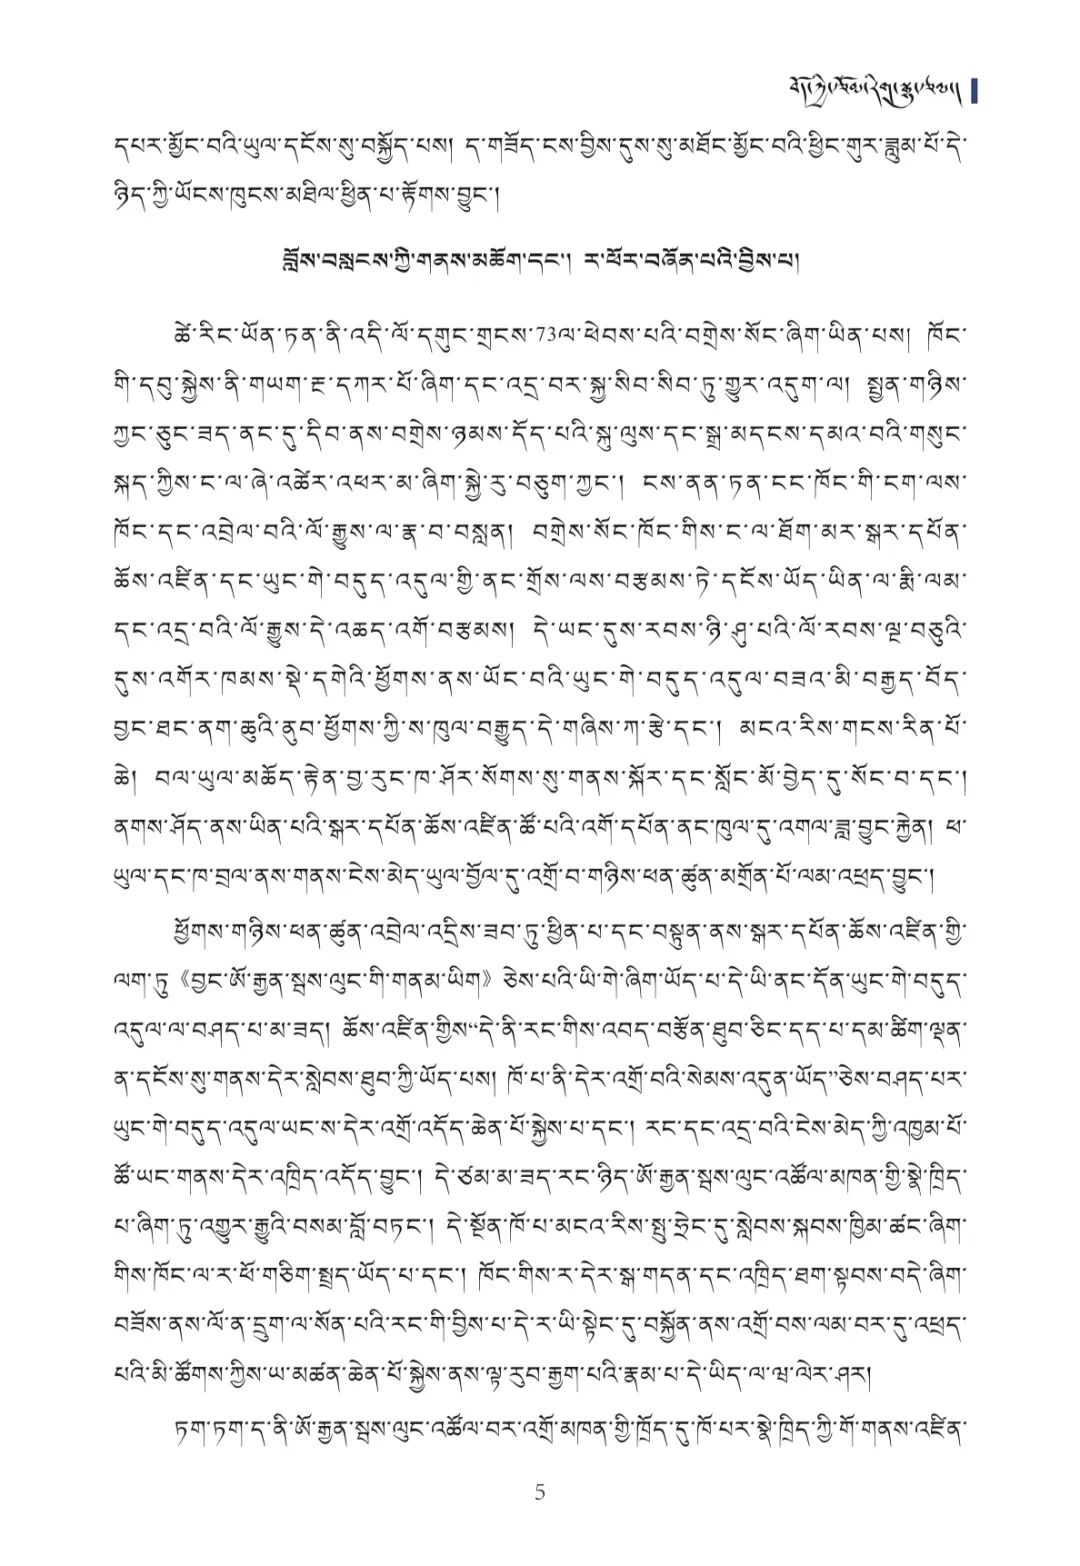 དཔར་མྱོང་བའི་ཡུལ་དངོས་སུ་བསྐྱོད་པས། ད་གཟོད་ངས་བྱིས་དུས་སུ་མཐོང་མྱོང་བའི་ཕྱིང་གུར་ཟླུམ་པོ་དེ་
ཉིད་ཀྱི་ཡོངས་ཁུངས་མཐིལ་ཕྱིན་པ་རྟོགས་བྱུང་།
བློས་བསླངས་ཀྱི་གནས་མཆོག་དང་། ར་ཕོར་བཞོན་པའི་བྱིས་པ།
ཚེ་རིང་ཡོན་ཏན་ནི་འདི་ལོ་དགུང་གྲངས་73ལ་ཕེབས་པའི་བགྲེས་སོང་ཞིག་ཡིན་པས། ཁོང་
གི་དབུ་སྐྱེས་ནི་གཡག་རྔ་དཀར་པོ་ཞིག་དང་འདྲ་བར་སྐྱ་སིབ་སིབ་ཏུ་གྱུར་འདུག་ལ། སྤྱན་གཉིས་
ཀྱང་ཅུང་ཟད་ནང་དུ་དིབ་ནས་བགྲེས་ཉམས་དོད་པའི་སྐུ་ལུས་དང་སྒྲ་མདངས་དམའ་བའི་གསུང་
སྐད་ཀྱིས་ང་ལ་ཞེ་འཚེར་འཕར་མ་ཞིག་སྐྱེ་རུ་བཅུག་ཀྱང་། ངས་ནན་ཏན་ངང་ཁོང་གི་ངག་ལས་
ཁོང་དང་འབྲེལ་བའི་ལོ་རྒྱུས་ལ་རྣ་བ་བསླན། བགྲེས་སོང་ཁོང་གིས་ང་ལ་ཐོག་མར་སྒར་དཔོན་
ཆོས་འཛིན་དང་ཡུང་གེ་བདུད་འདུལ་གྱི་ནང་གྲོས་ལས་བརྩམས་ཏེ་དངོས་ཡོད་ཡིན་ལ་རྨི་ལམ་
དང་འདྲ་བའི་ལོ་རྒྱུས་དེ་འཆད་འགོ་བརྩམས། དེ་ཡང་དུས་རབས་ཉི་ཤུ་པའི་ལོ་རབས་ལྔ་བཅུའི་
དུས་འགོར་ཁམས་སྡེ་དགེའི་ཕྱོགས་ནས་ཡོང་བའི་ཡུང་གེ་བདུད་འདུལ་བཟའ་མི་བརྒྱད་བོད་
བྱང་ཐང་ནག་ཆུའི་ནུབ་ཕྱོགས་ཀྱི་ས་ཁུལ་བརྒྱུད་དེ་གཞིས་ཀ་རྩེ་དང་། མངའ་རིས་གངས་རིན་པོ་
ཆེ། བལ་ཡུལ་མཆོད་རྟེན་བྱ་རུང་ཁ་ཤོར་སོགས་སུ་གནས་སྐོར་དང་སློང་མོ་བྱེད་དུ་སོང་བ་དང་།
ནགས་ཤོད་ནས་ཡིན་པའི་སྒར་དཔོན་ཆོས་འཛིན་ཚོ་པའི་འགོ་དཔོན་ནང་ཁུལ་དུ་འགལ་ཟླ་བྱུང་རྐྱེན། ཕ་
ཡུལ་དང་ཁ་བྲལ་ནས་གནས་ངེས་མེད་ཡུལ་བྱོལ་དུ་འགྲོ་བ་གཉིས་ཕན་ཚུན་མགྲོན་པོ་ལམ་འཕྲད་བྱུང་།
ཕྱོགས་གཉིས་ཕན་ཚུན་འབྲེལ་འདྲིས་ཟབ་ཏུ་ཕྱིན་པ་དང་བསྟུན་ནས་སྒར་དཔོན་ཆོས་འཛིན་གྱི་
ལག་ཏུ《བྱང་ཨོ་རྒྱན་སྦས་ལུང་གི་གནམ་ཡིག》ཅེས་པའི་ཡི་གེ་ཞིག་ཡོད་པ་དེ་ཡི་ནང་དོན་ཡུང་གེ་བདུད་
འདུལ་ལ་བཤད་པ་མ་ཟད། ཆོས་འཛིན་གྱིས“དེ་ནི་རང་གིས་འབད་བརྩོན་ཐུབ་ཅིང་དད་པ་དམ་ཚིག་ལྡན་
ན་དངོས་སུ་གནས་དེར་སླེབས་ཐུབ་ཀྱི་ཡོད་པས། ཁོ་པ་ནི་དེར་འགྲོ་བའི་སེམས་འདུན་ཡོད”ཅེས་བཤད་པར་
ཡུང་གེ་བདུད་འདུལ་ཡང་ས་དེར་འགྲོ་འདོད་ཆེན་པོ་སྐྱེས་པ་དང་། རང་དང་འདྲ་བའི་ངེས་མེད་ཀྱི་འཁྱམ་པོ་
ཚོ་ཡང་གནས་དེར་འཁྲིད་འདོད་བྱུང་། དེ་ཙམ་མ་ཟད་རང་ཉིད་ཨོ་རྒྱན་སྦས་ལུང་འཚོལ་མཁན་གྱི་སྣེ་ཁྲིད་
པ་ཞིག་ཏུ་འགྱུར་རྒྱུའི་བསམ་བློ་བཏང་། དེ་སྔོན་ཁོ་པ་མངའ་རིས་སྤུ་ཧྲེང་དུ་སླེབས་སྐབས་ཁྱིམ་ཚང་ཞིག་
གིས་ཁོང་ལ་ར་ཕོ་གཅིག་སྤྲད་ཡོད་པ་དང་། ཁོང་གིས་ར་དེར་སྒ་གདན་དང་འཁྲིད་ཐག་སྟབས་བདེ་ཞིག་
བཟོས་ནས་ལོ་ན་དྲུག་ལ་སོན་པའི་རང་གི་བྱིས་པ་དེ་ར་ཡི་སྟེང་དུ་བསྐྱོན་ནས་འགྲོ་བས་ལམ་བར་དུ་འཕྲད་
པའི་མི་ཚོགས་ཀྱིས་ཡ་མཚན་ཆེན་པོ་སྐྱེས་ནས་ལྟ་རུབ་རྒྱག་པའི་རྣམ་པ་དེ་ཡིད་ལ་ཝ་ལེར་ཤར།
ཏག་ཏག་ད་ནི་ཨོ་རྒྱན་སྦས་ལུང་འཚོལ་བར་འགྲོ་མཁན་གྱི་ཁྲོད་དུ་ཁོ་པར་སྣེ་ཁྲིད་ཀྱི་གོ་གནས་འཛིན་
5